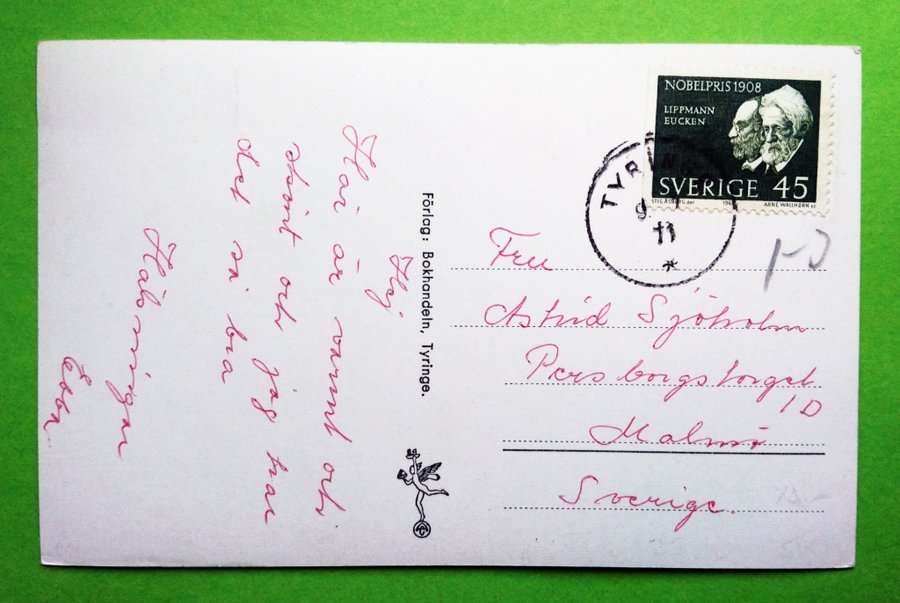 Hej
Här är varmt och
skönt och jag har
det så bra
Hälsningar
Förlag: Bokhandeln, Tyringe.
NOBELPRIS 1908
LIPPMANN
EUCKEN
SVERIGE 45
STIG ÅSBERG del.
ARNE WALLHORN sc.
TYRIN
9
11
Fru
Astrid Sjöholm
Persborgstorget
1D
Malmö
Sverige.